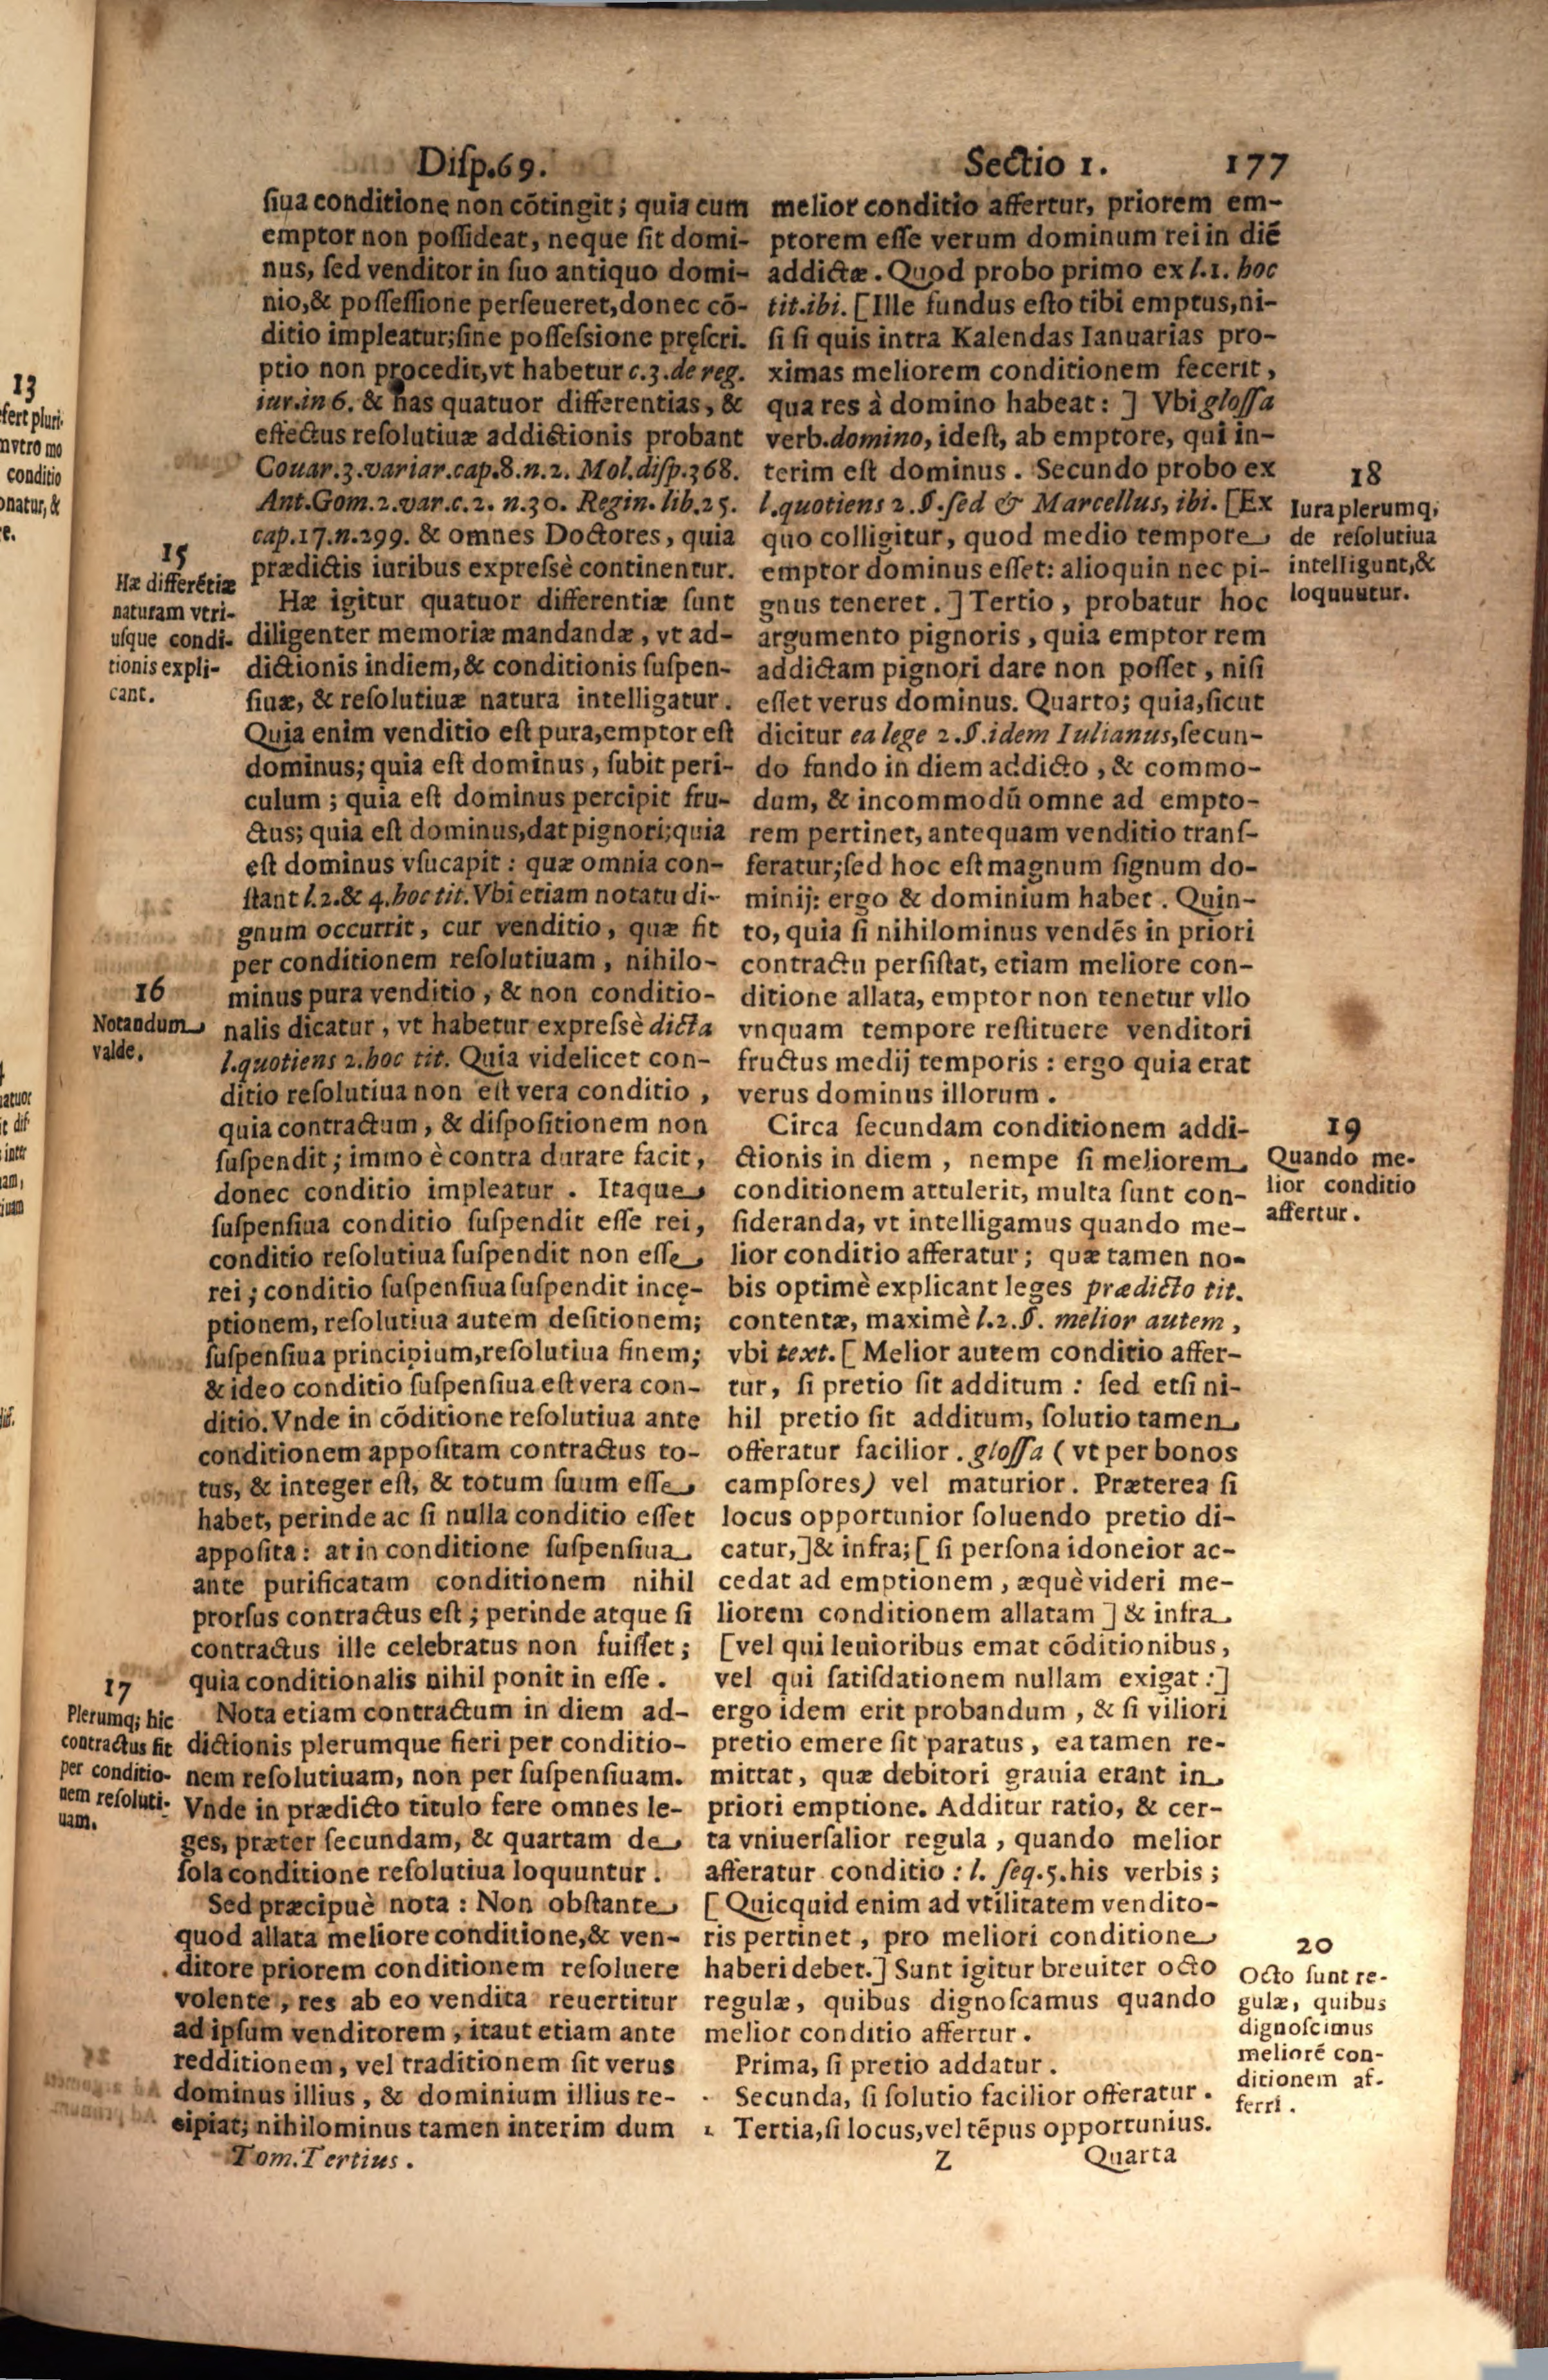 Disp.69. Sectio 1. 177
siua conditione non cõtingit; quia cum
emptor non possideat, neque sit domi-
nus, sed venditor in suo antiquo domi-
nio,& possessione perseueret,donec cõ-
ditio impleatur;sine possessione pręscri.
ptio non procedit,vt habetur c.3.de reg.
iur.in 6. & has quatuor differentias, &
effectus resolutiuæ addictionis probant
Couar.3.variar.cap.8.n.2. Mol.disp.368.
Ant.Gom.2.var.c.2. n.30. Regin.lib.25.
cap.17.n.299. & omnes Doctores, quia
prædictis iuribus expressè continentur.
15
Hæ differẽtiæ
naturam vtri-
usque condi-
tionis expli-
cant.
Hæ igitur quatuor differentiæ sunt
diligenter memoriæ mandandæ, vt ad-
dictionis indiem,& conditionis suspen-
siuæ, & resolutiuæ natura intelligatur.
Quia enim venditio est pura,emptor est
dominus; quia est dominus, subit peri-
culum; quia est dominus percipit fru-
ctus; quia est dominus,dat pignori;quia
est dominus vsucapit: quæ omnia con-
stant l.2.& 4.hoc tit. Vbi etiam notatu di-
gnum occurrit, cur venditio, quæ fit
per conditionem resolutiuam, nihilo-
minus pura venditio, & non conditio-
nalis dicatur, vt habetur expressè dicta
l.quotiens 2.hoc tit. Quia videlicet con-
ditio resolutiua non est vera conditio,
quia contractum, & dispositionem non
suspendit; immo è contra durare facit,
donec conditio impleatur. Itaque
suspensiua conditio suspendit esse rei,
conditio resolutiua suspendit non esse
rei; conditio suspensiua suspendit incę-
ptionem, resolutiua autem desitionem;
suspensiua principium,resolutiua finem;
& ideo conditio suspensiua est vera con-
ditio. Vnde in cõditione resolutiua ante
conditionem appositam contractus to-
tus, & integer est, & totum suum esse
habet, perinde ac si nulla conditio esset
apposita: at in conditione suspensiua
ante purificatam conditionem nihil
prorsus contractus est; perinde atque si
contractus ille celebratus non fuisset;
quia conditionalis nihil ponit in esse.
16
Notandum
valde.
17
Plerumq; hic
contractus fit
per conditio-
nem resoluti-
uam.
Nota etiam contractum in diem ad-
dictionis plerumque fieri per conditio-
nem resolutiuam, non per suspensiuam.
Vnde in prædicto titulo fere omnes le-
ges, præter secundam, & quartam de
sola conditione resolutiua loquuntur.
Sed præcipuè nota: Non obstante
quod allata meliore conditione,& ven-
ditore priorem conditionem resoluere
volente, res ab eo vendita reuertitur
ad ipsum venditorem, itaut etiam ante
redditionem, vel traditionem sit verus
dominus illius, & dominium illius re-
cipiat; nihilominus tamen interim dum
Tom.Tertius.
melior conditio affertur, priorem em-
ptorem esse verum dominum rei in diẽ
addictæ. Quod probo primo ex l.1. hoc
tit.ibi. [Ille fundus esto tibi emptus,ni-
si si quis intra Kalendas Ianuarias pro-
ximas meliorem conditionem fecerit,
qua res à domino habeat: ] Vbi glossa
verb.domino, idest, ab emptore, qui in-
terim est dominus. Secundo probo ex
l.quotiens 2.§.sed & Marcellus, ibi. [Ex
quo colligitur, quod medio tempore
emptor dominus esset: alioquin nec pi-
gnus teneret.] Tertio, probatur hoc
argumento pignoris, quia emptor rem
addictam pignori dare non posset, nisi
esset verus dominus. Quarto; quia,sicut
dicitur ea lege 2.§.idem Iulianus,secun-
do fundo in diem addicto, & commo-
dum, & incommodũ omne ad empto-
rem pertinet, antequam venditio trans-
feratur;sed hoc est magnum signum do-
minij: ergo & dominium habet. Quin-
to, quia si nihilominus vendẽs in priori
contractu persistat, etiam meliore con-
ditione allata, emptor non tenetur vllo
vnquam tempore restituere venditori
fructus medij temporis: ergo quia erat
verus dominus illorum.
18
Iura plerumq;
de resolutiua
intelligunt,&
loquuutur.
Circa secundam conditionem addi-
ctionis in diem, nempe si meliorem
conditionem attulerit, multa sunt con-
sideranda, vt intelligamus quando me-
lior conditio afferatur; quæ tamen no-
bis optimè explicant leges prædicto tit.
contentæ, maximè l.2.§. melior autem,
vbi text. [ Melior autem conditio affer-
tur, si pretio sit additum: sed etsi ni-
hil pretio sit additum, solutio tamen
offeratur facilior. glossa ( vt per bonos
campsores) vel maturior. Præterea si
locus opportunior soluendo pretio di-
catur,]& infra; [ si persona idoneior ac-
cedat ad emptionem, æquè videri me-
liorem conditionem allatam ] & infra
[vel qui leuioribus emat cõditionibus,
vel qui satisdationem nullam exigat:]
ergo idem erit probandum, & si viliori
pretio emere sit paratus, ea tamen re-
mittat, quæ debitori grauia erant in
priori emptione. Additur ratio, & cer-
ta vniuersalior regula, quando melior
afferatur conditio: l. seq.5.his verbis;
[ Quicquid enim ad vtilitatem vendito-
ris pertinet, pro meliori conditione
haberi debet.] Sunt igitur breuiter octo
regulæ, quibus dignoscamus quando
melior conditio affertur.
Prima, si pretio addatur.
Secunda, si solutio facilior offeratur.
Tertia,si locus,vel tẽpus opportunius.
19
Quando me-
lior conditio
affertur.
20
Octo sunt re-
gulæ, quibus
dignoscimus
meliorẽ con-
ditionem af-
ferri.
Z Quarta
13
fert pluri-
nvtro mo
conditio
onatur, &
e.